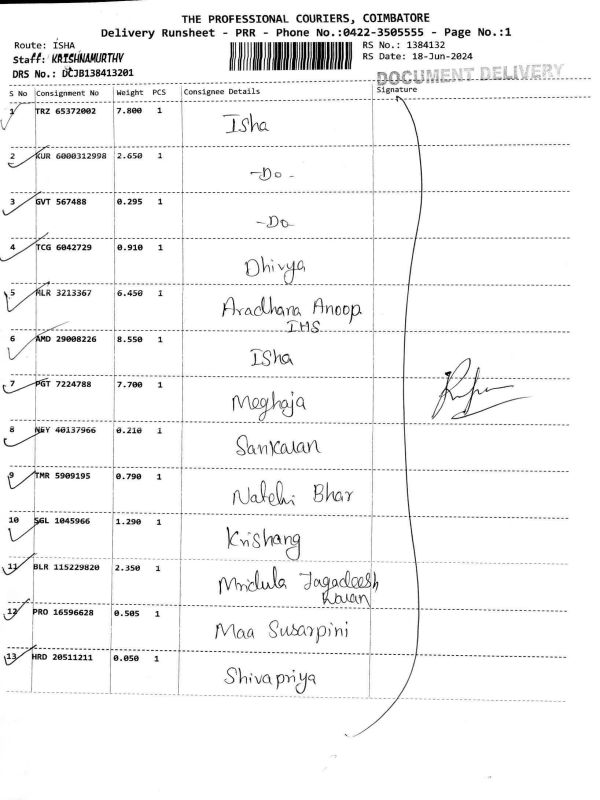 THE PROFESSIONAL COURIERS, COIMBATORE
Delivery Runsheet - PRR - Phone No.:0422-3505555 - Page No.:1
Route: ISHA
Staff: KRISHNAMURTHY
DRS No.: DCJB138413201
RS No.: 1384132
RS Date: 18-Jun-2024
DOCUMENT DELIVERY
S No Consignment No Weight PCS Consignee Details Signature
1 TRZ 65372002 7.800 1 Isha
2 KUR 6000312998 2.650 1 -Do-
3 GVT 567488 0.295 1 -Do-
4 TCG 6042729 0.910 1 Dhivya
5 MLR 3213367 6.450 1 Aradhana Anoop
IHS
6 AMD 29008226 8.550 1 Isha
7 PGT 7224788 7.700 1 Meghaja
8 NEY 40137966 0.210 1 Sankaran
9 TMR 5909195 0.790 1 Bhar
10 SGL 1045966 1.290 1 Krishang
11 BLR 115229820 2.350 1 Mridula Jagadeesh
12 PRO 16596628 0.505 1 Maa Susarpini
13 HRD 20511211 0.050 1 Shivapriya